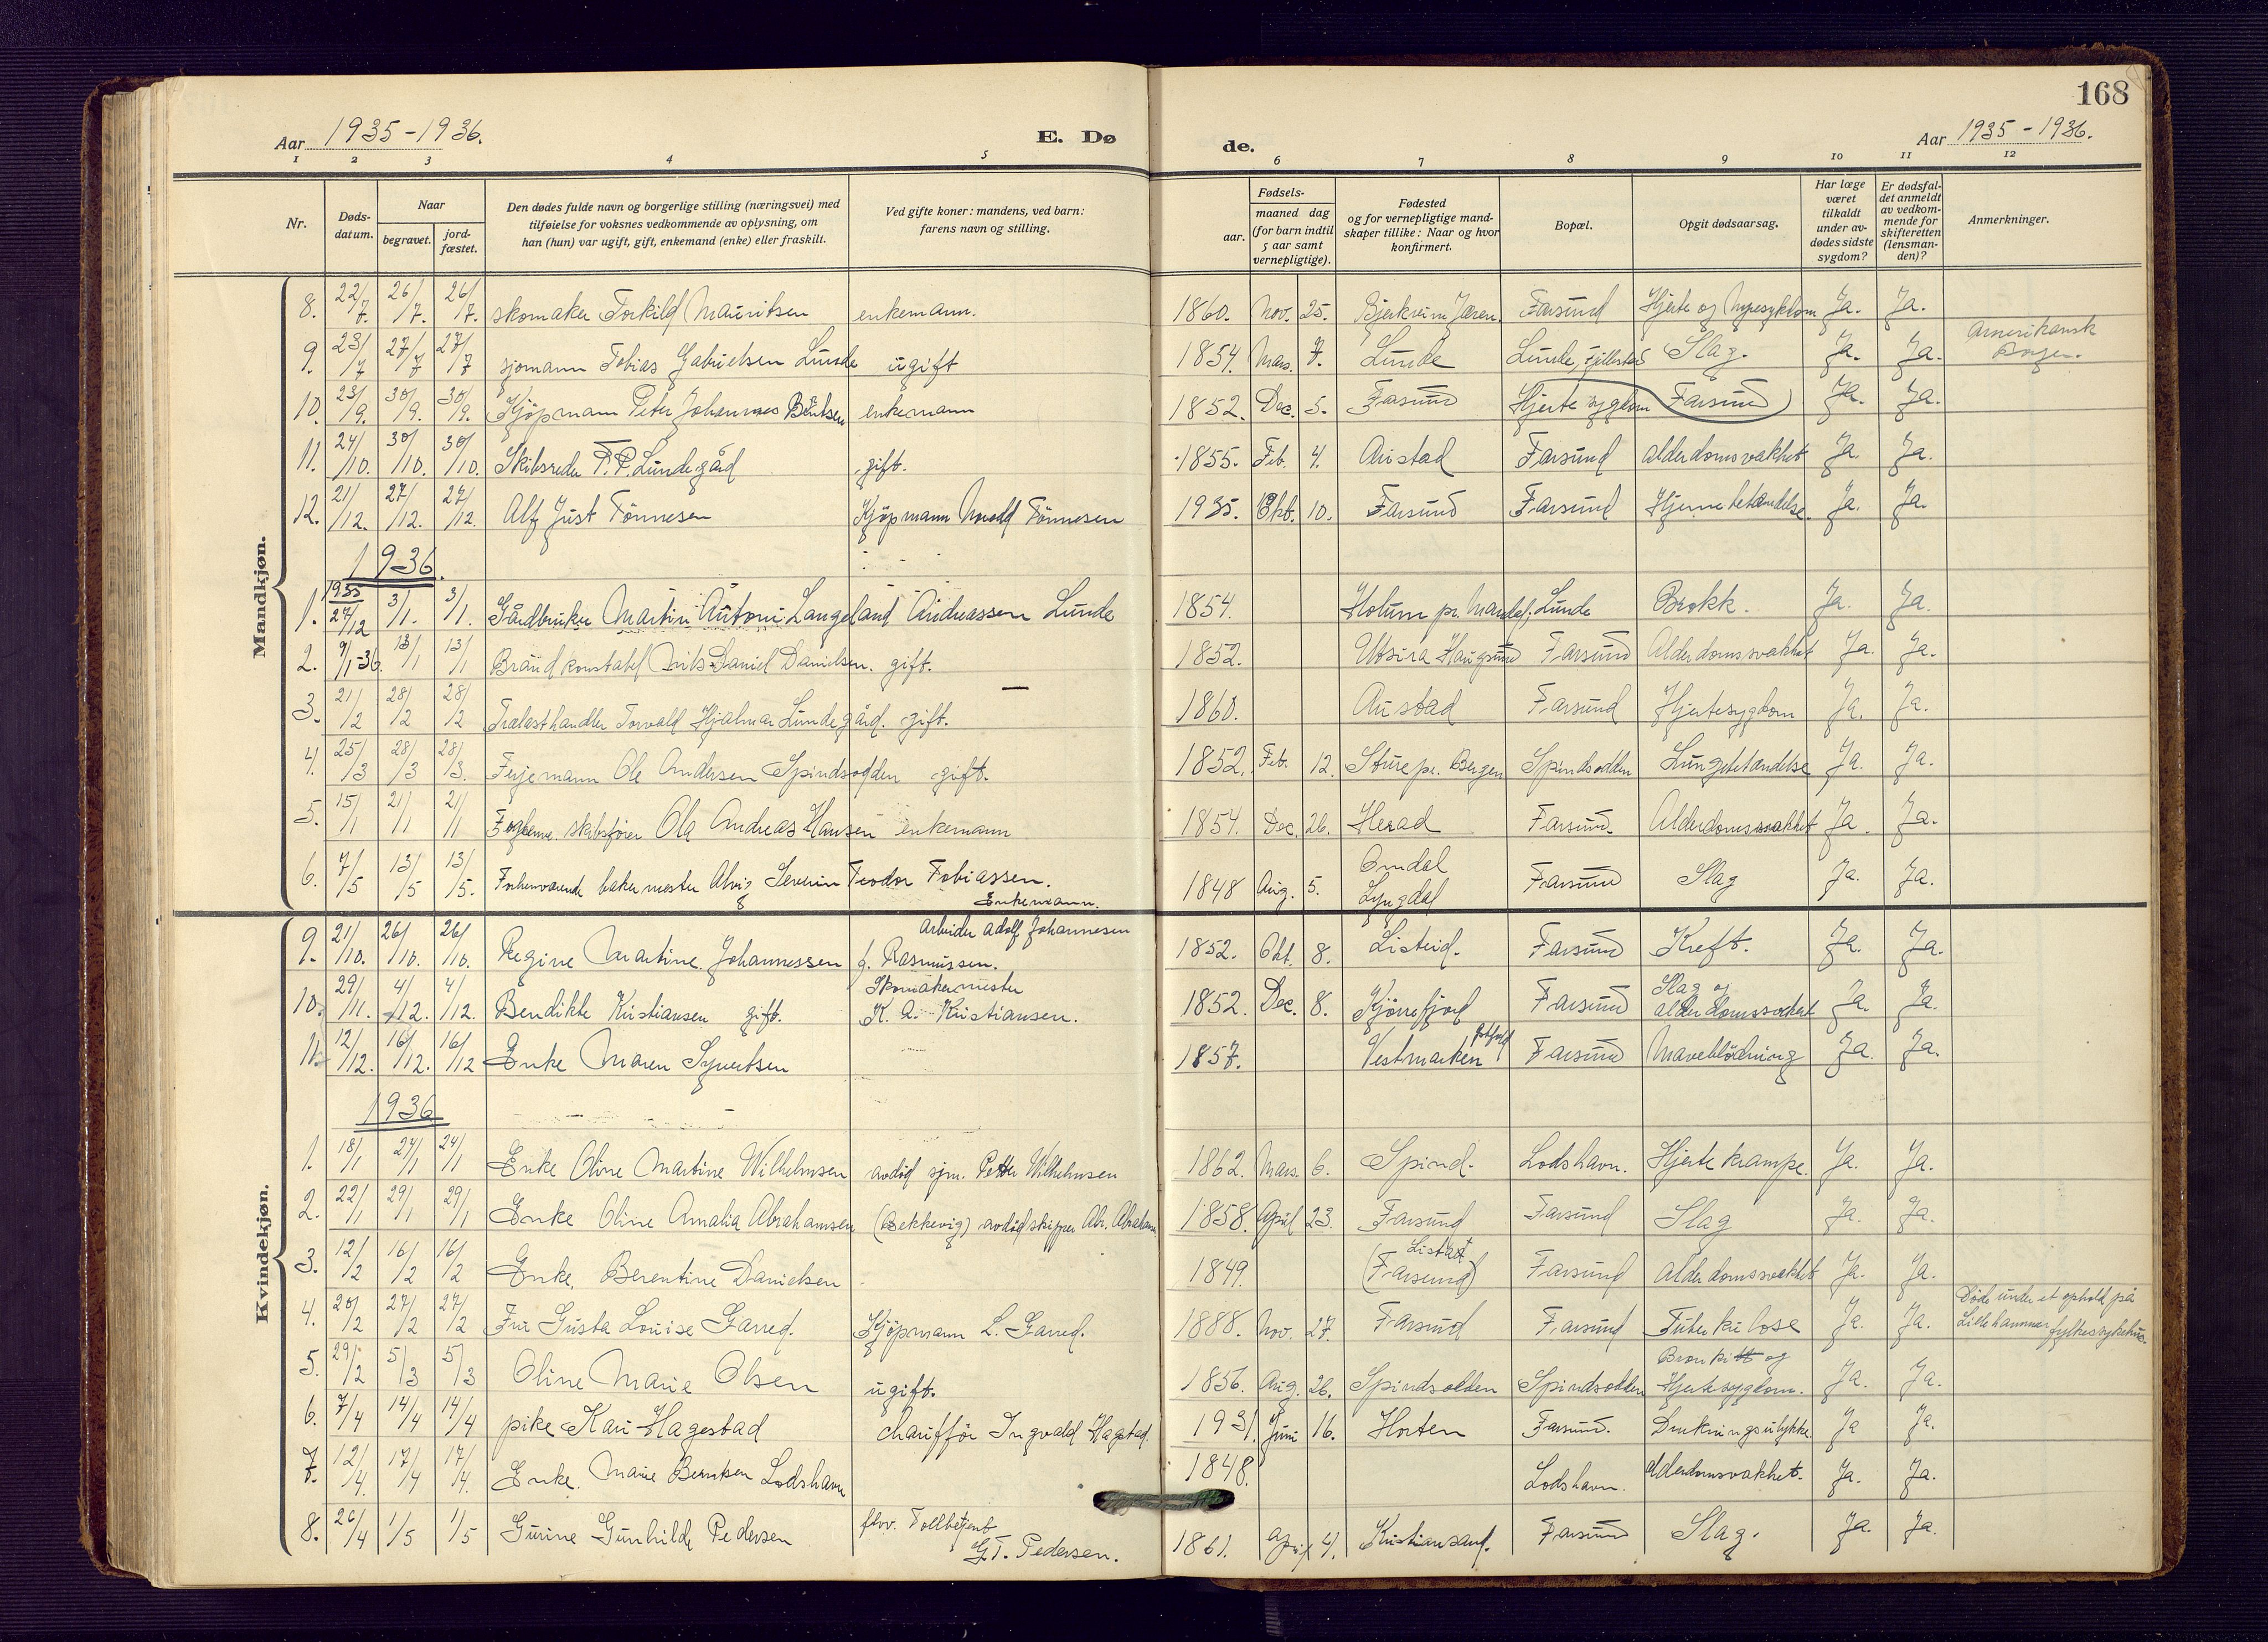 168
Aar 1935-1936.
E. Dø
de.
Aar 1935-1936.
1 2 3 4 5 6 7 8 9 10 11 12
Nr.
Døds-
datum.
Naar
begravet.
jord-
fæstet.
Den dødes fulde navn og borgerlige stilling (næringsvei) med
tilføielse for voksnes vedkommende av oplysning, om
han (hun) var ugift, gift, enkemand (enke) eller fraskilt.
Ved gifte koner: mandens, ved barn:
farens navn og stilling.
Fødsels-
aar.
maaned dag
(for barn indtil
5 aar samt
vernepligtige).
Fødested
og for vernepligtige mand-
skaper tillike: Naar og hvor
konfirmert.
Bopæl.
Opgit dødsaarsag.
Har læge
været
tilkaldt
under av-
dødes sidste
sygdom?
Er dødsfal-
det anmeldt
av vedkom-
mende for
skifteretten
(lensman-
den)?
Anmerkninger.
Mandkjøn.
8. 22/7. 26/7. 26/7. skomaker Torkild Mauritsen enkemann. 1860. Nov. 25. Bjerkreim Jæren. Farsund Hjerte og Nyresykdom Ja. Ja.
9. 23/7 27/7 27/7 sjømann Tobias Gabrielsen Lunde ugift 1854. Mars. 7. Lunde Lunde, Slag. Ja. Ja. Amerikansk Borger.
10. 23/9. 30/9. 30/9. Kjøpmann Peter Johannes Bentsen enkemann 1852. Dec. 5. Farsund Hjertesygdom Farsund Ja. Ja.
11. 24/10. 30/10. 30/10. Skibsreder F. P. Lundegård gift. 1855. Feb. 4. Austad Farsund alderdomsvakhet Ja. Ja.
12. 21/12. 27/12. 27/12. Alf Just Tönnesen Kjøpmann Tönnesen 1935. Okt. 10. Farsund Farsund Hjernebetændelse. Ja. Ja.
1936.
1. 1935 27/12 3/1. 3/1. Gårdbruker Martin Antoni Langeland Andreassen Lunde 1854. Holum pr. Mandal; Lunde Brokk. Ja. Ja.
2. 9/1-36. 13/1 13/1 Brandkonstabel Nils Daniel Danielsen. gift. 1852. Utsira Haugsund Farsund Alderdomssvakhet Ja. Ja.
3. 21/2 28/2 28/2 Trælasthandler Torvald Hjalmar Lundegård. gift. 1860. Austad Farsund Hjertesygdom Ja. Ja.
4. 25/3 28/3 28/3. Ferjemann Ole Andersen Spindsodden gift. 1852. Feb. 12. Sture pr. Bergen Spindsodden Lungebetændelse Ja. Ja.
5. 15/1 21/1 21/1 skibsfører Ola Andreas Hansen enkemann 1854. Dec. 26. Herad Farsund. Alderdomssvakhet Ja. Ja.
6. 7/5 13/5 13/5. Forhenværende bakermester Severin Teodor Tobiassen.
Enkemann. 1848 Aug. 5. Omdal
Lyngdal Farsund Slag Ja. Ja.
Kvindekjøn.
9. 21/10. 26/10. 26/10. Regine Martine Johannessen Arbeider Adolf Johannesen
f. Rasmussen. 1852. Okt. 8. Listeid. Farsund Kreft. Ja. Ja.
10. 29/11. 4/12. 4/12. Bendikte Kristiansen gift. Skomakermester
K. A. Kristiansen. 1852. Dec. 8. Kjørrefjord Farsund Slag og
alderdomssvakhet Ja. Ja.
11. 12/12. 16/12. 16/12 Enke Maren Syvertsen 1857. Vestmarken Farsund Maveblödning Ja. Ja.
1936
1. 18/1 24/1 24/1 Enke Oline Martine Wilhelmsen avdöd sjm. Petter Wilhelmsen 1862. Mars. 6. Spind. Lodshavn. Hjertekrampe. Ja. Ja.
2. 22/1 29/1 29/1 Enke Oline Amalia Abrahamsen (Bekkevig) avdöd skipper Abr. Abrahamsen 1858. April 23. Farsund Farsund Slag Ja. Ja.
3. 12/2 16/2 16/2 Enke. Berentine Danielsen 1849. Listad
(Farsund) Farsund Alderdomssvakhet Ja. Ja.
4. 20/2 27/2 27/2 Fru Gusta Louise Garred. Kjøpmann L. Garred. 1888. Nov. 27. Farsund Farsund Tuberkulose Ja. Ja. Døde under et ophold på
Lillehammer fylkessykehus.
5. 29/2 5/3 5/3 Oline Marie Olsen ugift. 1856. Aug. 26. Spindsodden Spindsodden Bronkitt og
Hjertesygdom. Ja. Ja.
6. 7/4 14/4 14/4 pike Kari Hagestad chauffør Ingvald Hagestad. 1931. Juni 16. Horten Farsund. Drukningsulykke Ja Ja.
7. 12/4. 17/4 17/4. Enke. Marie Berntsen Lodshavn 1848. Lodshavn. alderdomsvakhet. Ja. Ja.
8. 26/4 1/5 1/5 Gurine Gunhilde Pedersen fhv. Tollbetjent
G. T. Pedersen. 1861. April 4. Kristiansand. Farsund Slag. Ja. Ja.